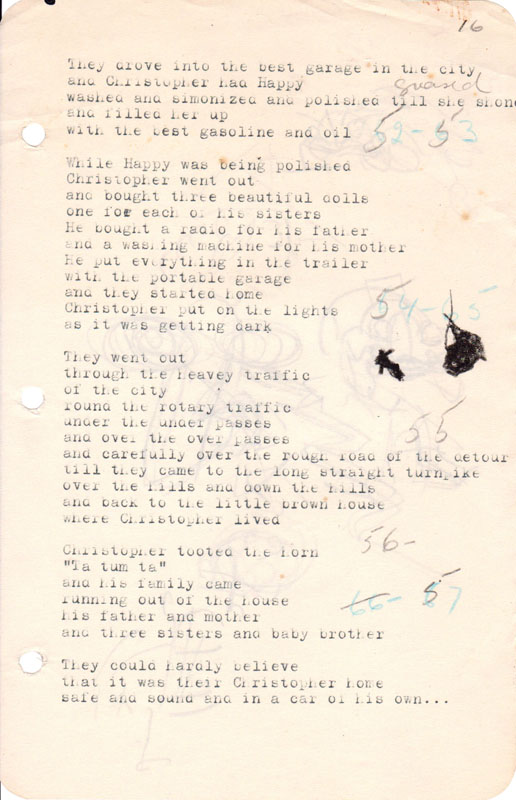 16
They drove into the best garage in the city
and Christopher had Happy greased
washed and simonized and polished till she shone
and filled her up
with the best gasoline and oil 52-53
While Happy was being polished
Christopher went out
and bought three beautiful dolls
one for each of his sisters
He bought a radio for his father
and a washing machine for his mother
He put everything in the trailer
with the portable garage
and they started home
Christopher put on the lights 54-55
as it was getting dark
They went out
through the heavey traffic
of the city
round the rotary traffic
under the under passes 55
and over the over passes
and carefully over the rough road of the detour
till they came to the long straight turnpike
over the hills and down the hills
and back to the little brown house
where Christopher lived
Christopher tooted the horn 56-
"Ta tum ta"
and his family came
running out of the house 57
his father and mother
and three sisters and baby brother
They could hardly believe
that it was their Christopher home
safe and sound and in a car of his own...